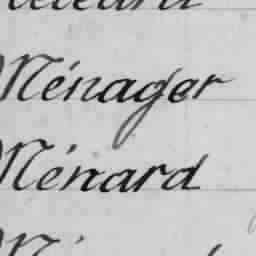 Ménager
Ménard